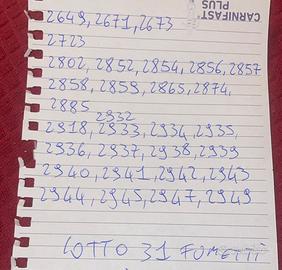 CARNIFAST
PLUS
2649, 2671, 2673
2723
2802, 2852, 2854, 2856, 2857
2858, 2859, 2865, 2874,
2885
2932
2918, 2933, 2934, 2935,
2936, 2937, 2938, 2939
2940, 2941, 2942, 2943
2944, 2945, 2947, 2949
LOTTO 31 FUMETTI